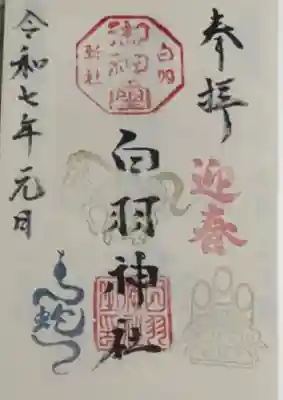 奉拝
迎春
白羽神社
蛇
令和七年元日